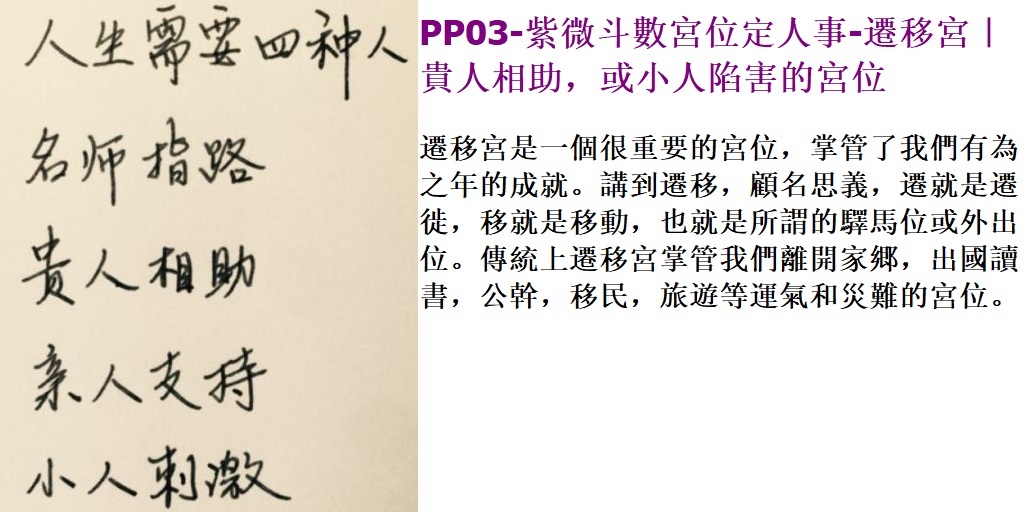 人生需要四种人
名师指路
贵人相助
亲人支持
小人刺激
PP03-紫微斗數宮位定人事-遷移宮｜
貴人相助，或小人陷害的宮位
遷移宮是一個很重要的宮位，掌管了我們有為
之年的成就。講到遷移，顧名思義，遷就是遷
徙，移就是移動，也就是所謂的驛馬位或外出
位。傳統上遷移宮掌管我們離開家鄉，出國讀
書，公幹，移民，旅遊等運氣和災難的宮位。